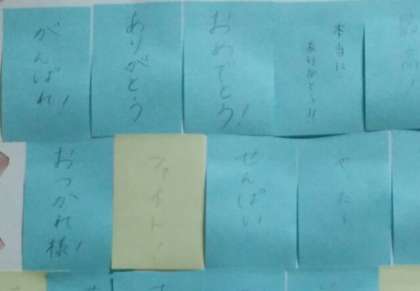 がんばれ!
ありがとう
おめでとう!
本当に
ありがとう!!
おつかれ様!
ファイト!
せんぱい